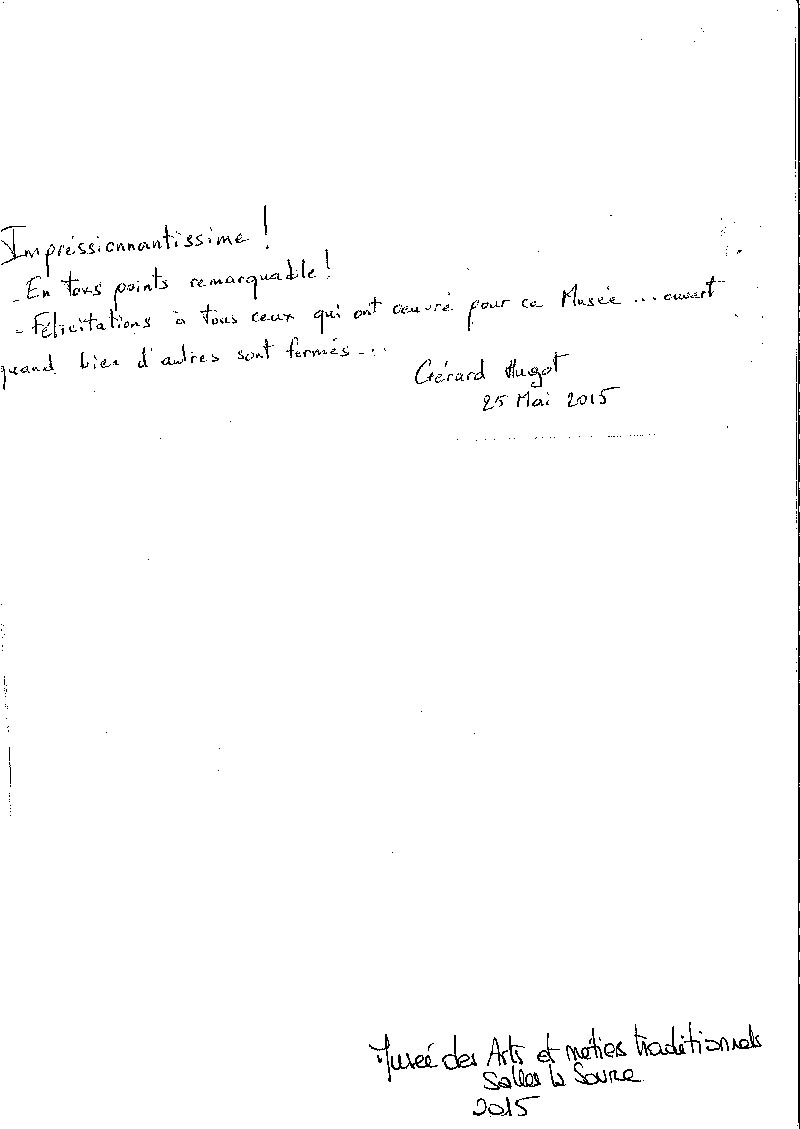 Impréssionnantissime !
- En tous points remarquable !
- Félicitations à tous ceux qui ont œuvré pour ce Musée ... ouvert
quand bien d'autres sont fermés ...
Gérard Hugot
25 Mai 2015
Museé des Arts et métiers traditionnels
Salles la Source
2015